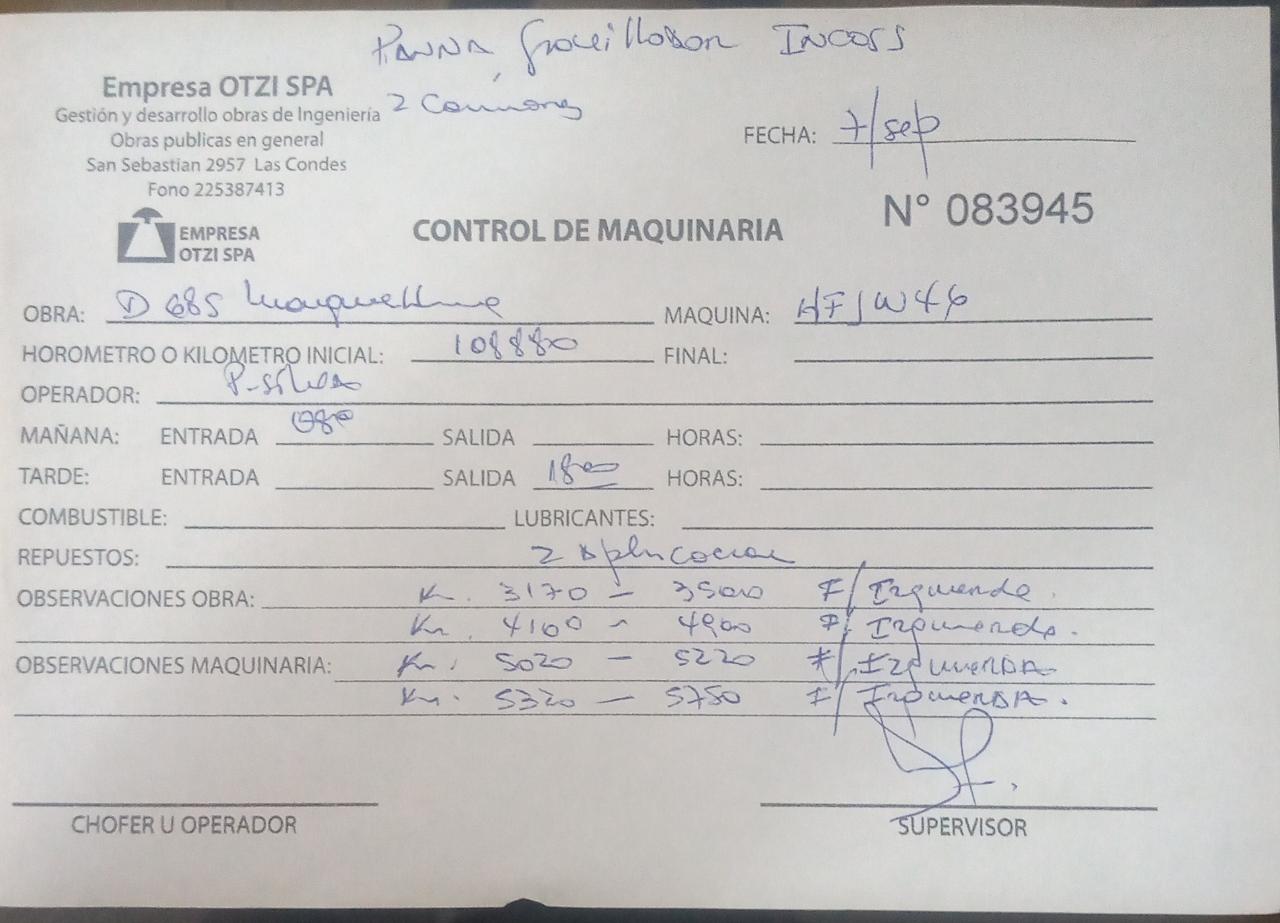 PANNA, Gravilladora INCOSS
2 Camiones
Empresa OTZI SPA
Gestión y desarrollo obras de Ingeniería
Obras publicas en general
San Sebastian 2957 Las Condes
Fono 225387413
FECHA: 7/sep
N° 083945
EMPRESA
OTZI SPA
CONTROL DE MAQUINARIA
OBRA: D 685 MAQUINA: HFJW46
HOROMETRO O KILOMETRO INICIAL: 108880 FINAL:
OPERADOR: P-Silva
MAÑANA: ENTRADA 080 SALIDA HORAS:
TARDE: ENTRADA SALIDA 1800 HORAS:
COMBUSTIBLE: LUBRICANTES:
REPUESTOS: 2 Aplicacion
OBSERVACIONES OBRA: Km. 3170 - 3500 F/ Izquierda.
Km. 4100 - 4900 F/ Izquierda.
OBSERVACIONES MAQUINARIA: Km. 5020 - 5220 F/ IzquierDA
Km. 5320 - 5750 F/ IzquierDA.
CHOFER U OPERADOR
SUPERVISOR